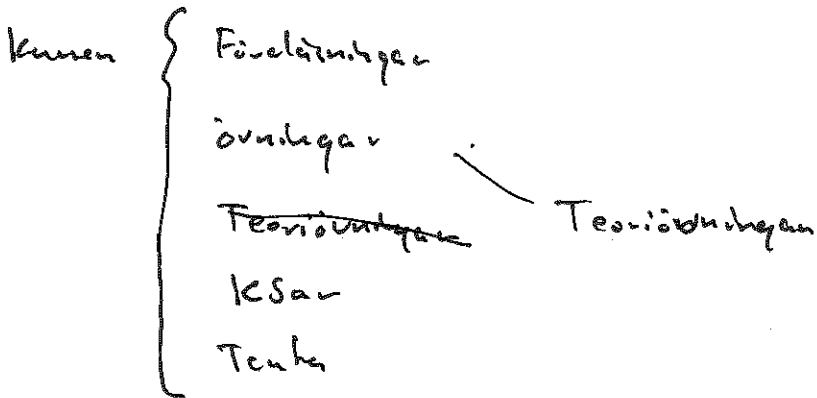 Kursen
Föreläsningar
övningar
Teoriövningar
Teoriövningar
KSar
Tenta